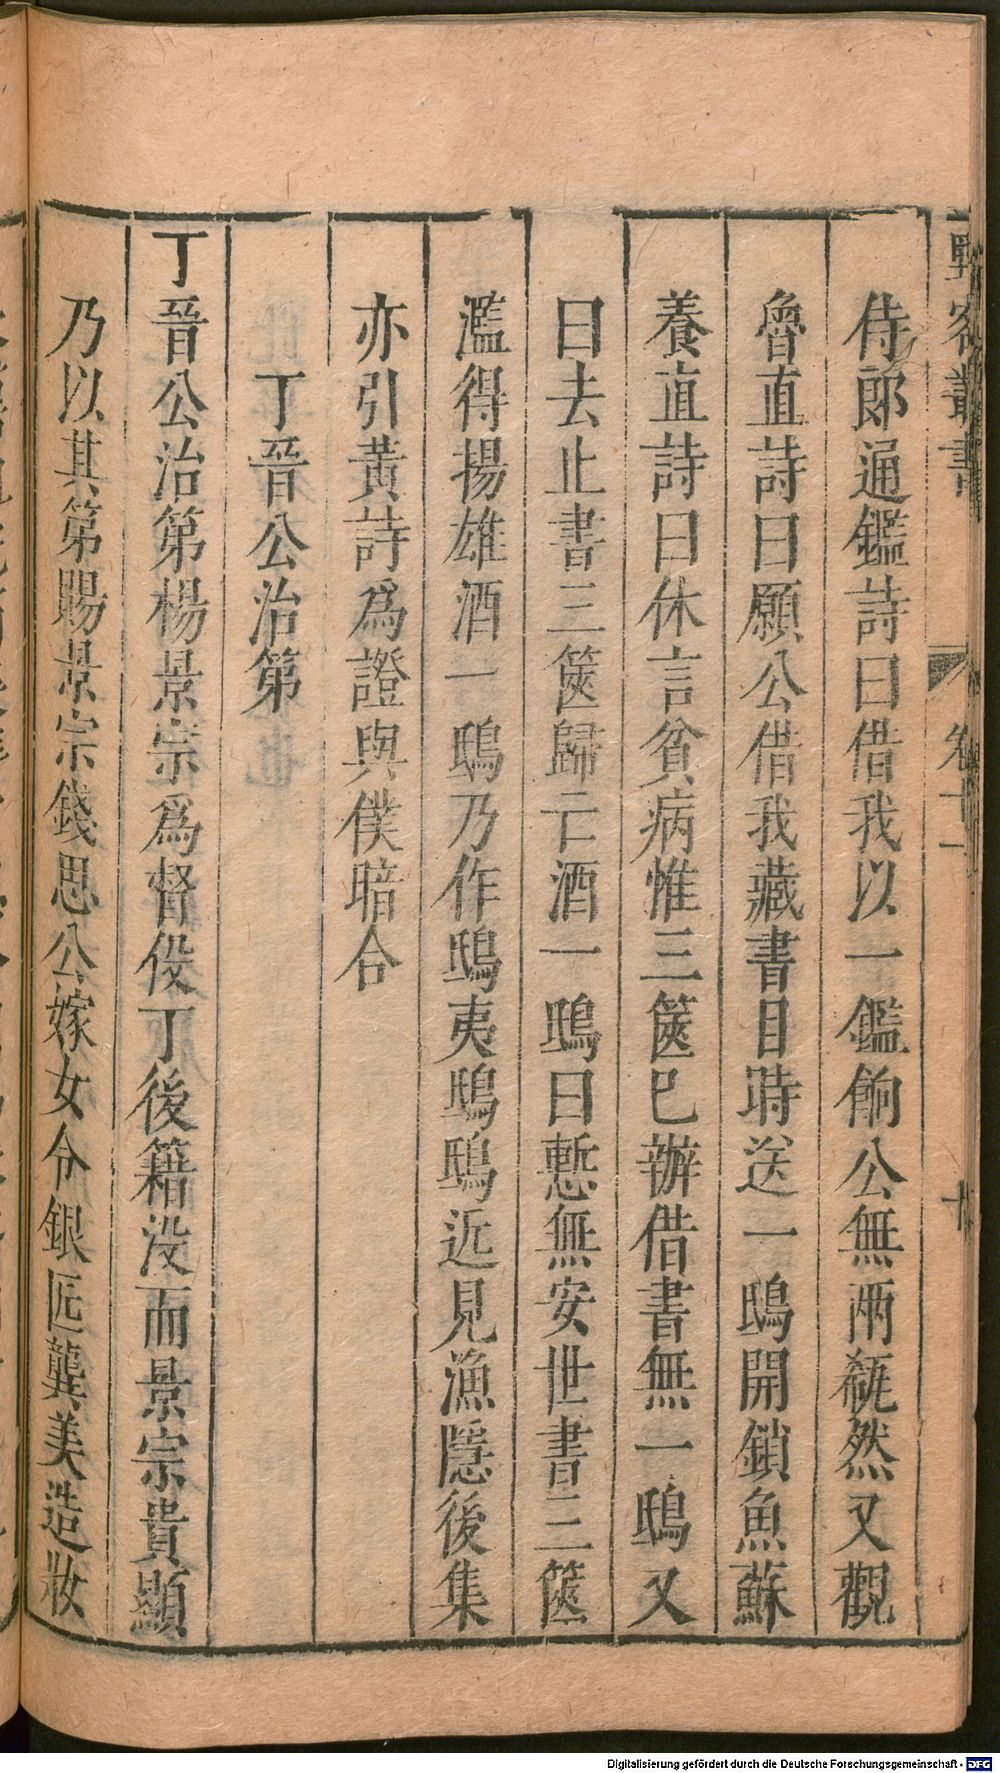 野客叢書
卷十一
十
侍郎通鑑詩曰借我以一鑑餉公無兩瓻然又觀
魯直詩曰願公借我藏書目時送一鴟開鎖魚蘇
養直詩曰休言貧病惟三篋已辦借書無一鴟又
曰去止書三篋歸亡酒一鴟曰慙無安世書三篋
濫得揚雄酒一鴟乃作鴟夷鴟鴟近見漁隱後集
亦引黃詩爲證與僕暗合
丁晉公治第
丁晉公治第楊景宗爲督役丁後籍没而景宗貴顯
乃以其第賜景宗錢思公嫁女令銀匠龔美造妝
Digitalisierung gefördert durch die Deutsche Forschungsgemeinschaft - DFG